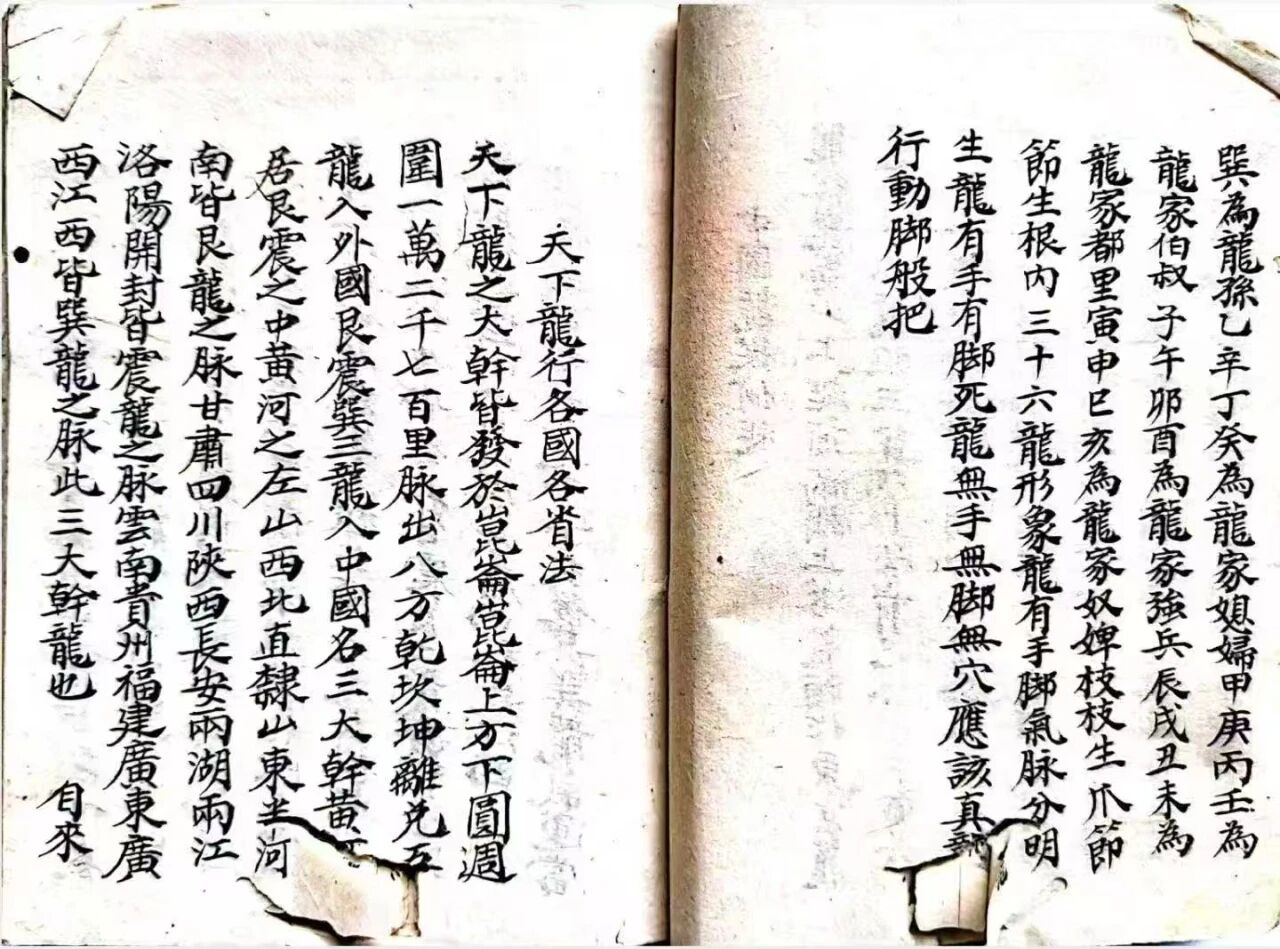 巽為龍孫乙辛丁癸為龍家媳婦甲庚丙壬為
龍家伯叔子午卯酉為龍家強兵辰戌丑未為
龍家都里寅申巳亥為龍家奴婢枝枝生爪節
節生根內三十六龍形象龍有手脚氣脉分明
生龍有手有脚死龍無手無脚無穴應該真
行動脚般把
天下龍行各國各省法
天下龍之大幹皆發於崑崙崑崙上方下圓週
圍一萬二千七百里脉出八方乾坎坤離兌五
龍入外國艮震巽三龍入中國名三大幹黃
居艮震之中黃河之左山西北直隸山東半河
南皆艮龍之脉甘肅四川陝西長安兩湖兩江
洛陽開封皆震龍之脉雲南貴州福建廣東廣
西江西皆巽龍之脉此三大幹龍也 自來